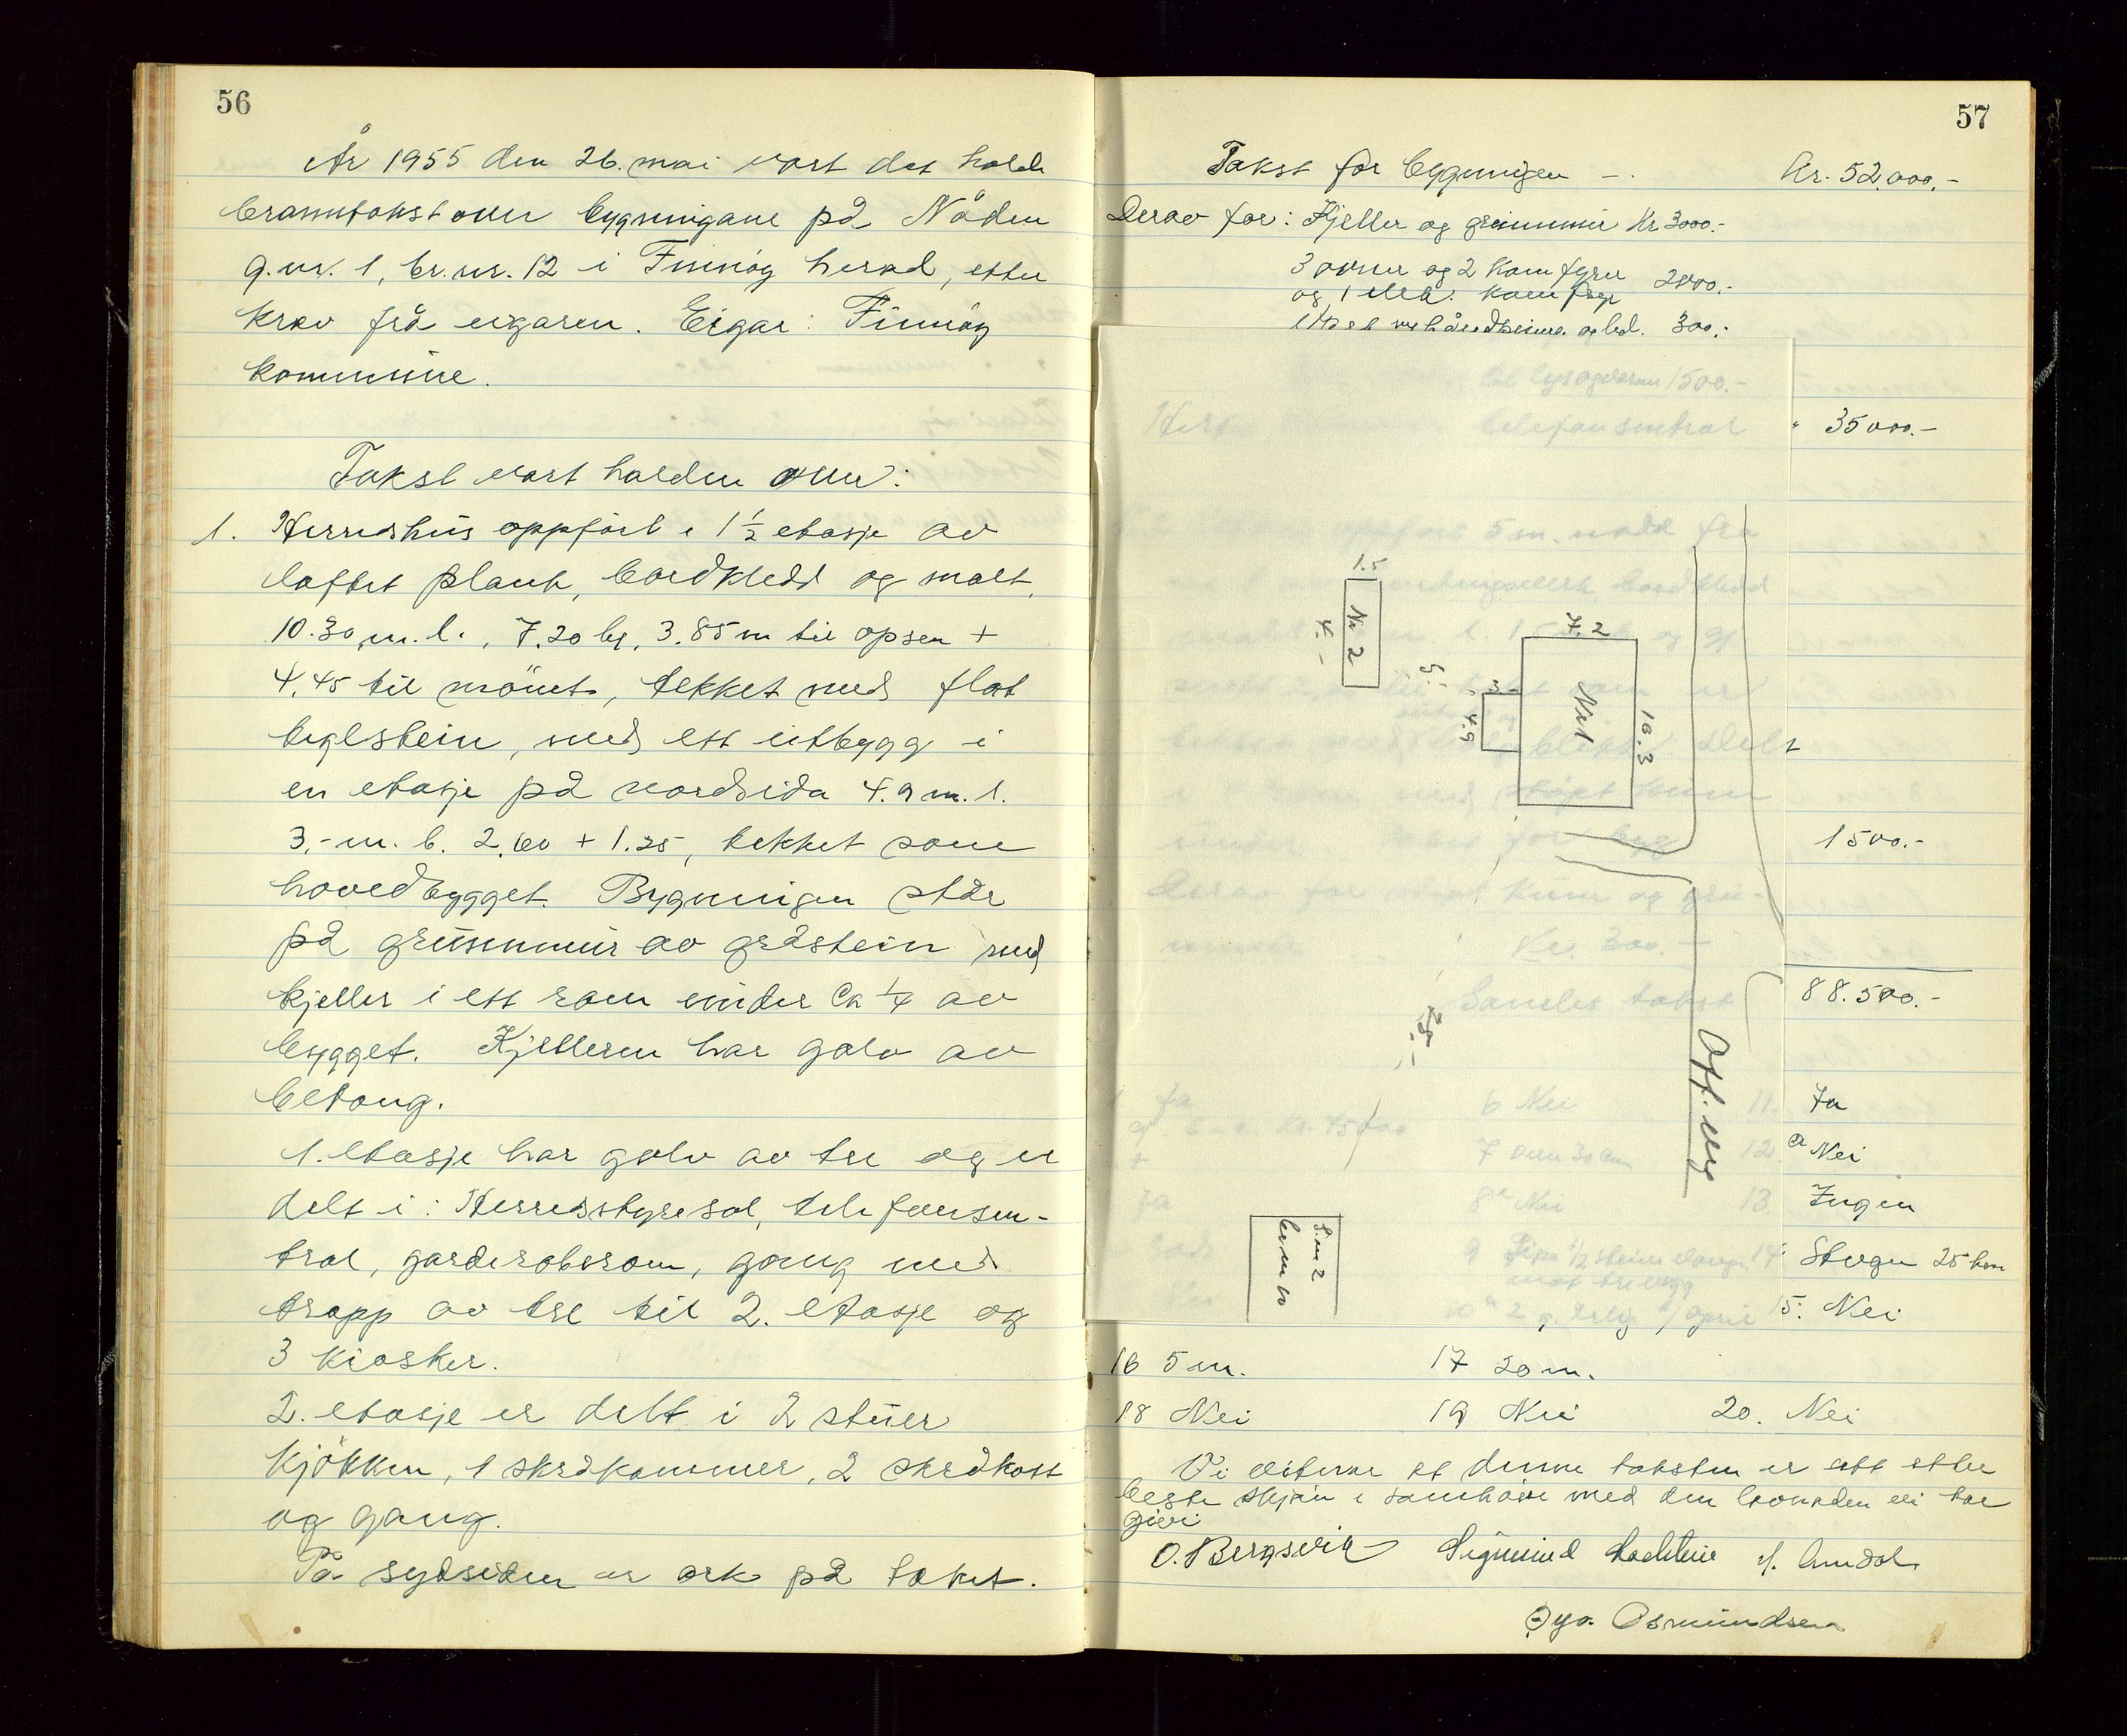 56
År 1955 den 26. mai vart det halde
branntakst over bygningane på Nåden
g.nr. 1, br.nr. 12 i Finnøy herad, etter
krav frå eigaren. Eigar: Finnøy
kommune.
Takst vart halden over:
1. Herredshus oppført i 1 1/2 etasje av
laftet plank, bordkledd og malt,
10.30 m. l., 7.20 br, 3.85 m til opsen +
4.45 til mönet, tekket med flat
teglstein, med ett utbygg i
en etasje på nordsida 4.9 m. l.
3.- m. b. 2.60 + 1.25, tekket som
hovedbygget. Bygningen står
på grunnmur av gråstein med
kjeller i ett rom under Ca 1/4 av
bygget. Kjelleren har golv av
betong.
1. etasje har golv av tre og er
delt i: Herredstyresal, telefonsen-
tral, garderoberom, gang med
trapp av tre til 2. etasje og
3 kiosker.
2. etasje er delt i 2 stuer
kjøkken, 1 skråkammer, 2 skråkott
og gang.
På sydsiden er ark på taket.
57
Takst for bygningen -. Kr. 52.000,-
Derav for: Kjeller og grunnmur Kr 3000.-
3 ovner og 2 komfyrer 2000.-
og 1 elek. komfyr
300.-
til lysogvarme 1500.-
telefonsentral " 35000.-
5 m. nord fra
bordkledd
1.5
Nr 2
4.-
5.-
7.2
Nr 1
10.3
3-
4.9
Delt
støpt kum
under takst for byg 1500.-
Derav for støpt kum og grun-
Kr. 300.-
Samlet takst 88.500.-
Off. veg
Ja 6 Nei 11. Ja
7 over 30 cm 12 a Nei
Ja 8a Nei 13. Ingen
9 Pipa 1/2 stein 14 Skogn 25 km
mot trevegg
15. Nei
16 5 m. 17 20 m.
18 Nei 19 Nei 20. Nei
Vi vitner at denne taksten er sett etter
beste skjøn i samhøve med den lovnaden vi har
givi
O. Bergsvik Sigmund
Osmundsen